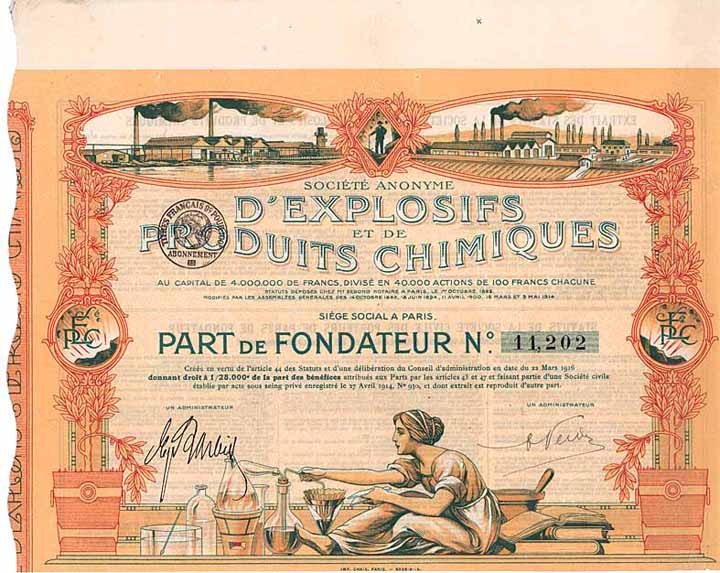 SOCIÉTÉ ANONYME
D'EXPLOSIFS
ET DE
PRODUITS CHIMIQUES
TIMBRES FRANÇAIS
ABONNEMENT
AU CAPITAL DE 4.000.000 DE FRANCS, DIVISÉ EN 40.000 ACTIONS DE 100 FRANCS CHACUNE
STATUTS DÉPOSÉS CHEZ Mᵉ NOTAIRE À PARIS, LE 1ᵉʳ OCTOBRE
MODIFIÉS PAR LES ASSEMBLÉES GÉNÉRALES DES 14 OCTOBRE 18 JUIN 1894, 11 AVRIL 1900, 18 MARS ET 9 MAI 1914
SIÈGE SOCIAL A PARIS.
PART DE FONDATEUR Nº 11,202
Créés en vertu de l'article 44 des Statuts et d'une délibération du Conseil d'administration en date du 22 Mars 1916
donnant droit à 1/25.000ᵉ de la part des bénéfices attribués aux Parts par les articles 45 et 47 et faisant partie d'une Société civile
établie par acte sous seing privé enregistré le 27 Avril 1914, Nº 930, et dont extrait est reproduit d'autre part.
UN ADMINISTRATEUR
UN ADMINISTRATEUR
IMP. CHAIX, PARIS.